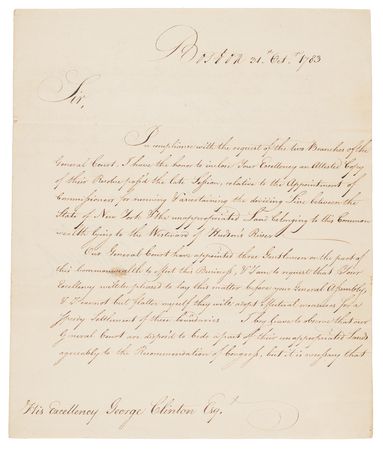 Boston 31st. Oct.r 1783
Sir,
In compliance with the request of the two Branches of the
General Court, I have the honor to inclose Your Excellency an Attested Copy
of their Resolve pass'd the late Session, relative to the Appointment of
Commissioners, for running & ascertaining the dividing Line between the
State of New York & the unappropriated Land belonging to this Common
wealth lying to the Westward of Hudson's River
Our General Court have appointed three Gentlemen on the part of
this Commonwealth to effect this Business, & I am to request that Your
Excellency will be pleased to lay this matter before your General Assembly,
& I cannot but flatter myself they will adopt effectual measures for a
speedy Settlement of these boundaries I beg leave to observe that our
General Court are dispos'd to cede a part of their unappropriated lands
agreeably to the Recommendation of Congress, but it is necessary that
His Excellency George Clinton Esq.r